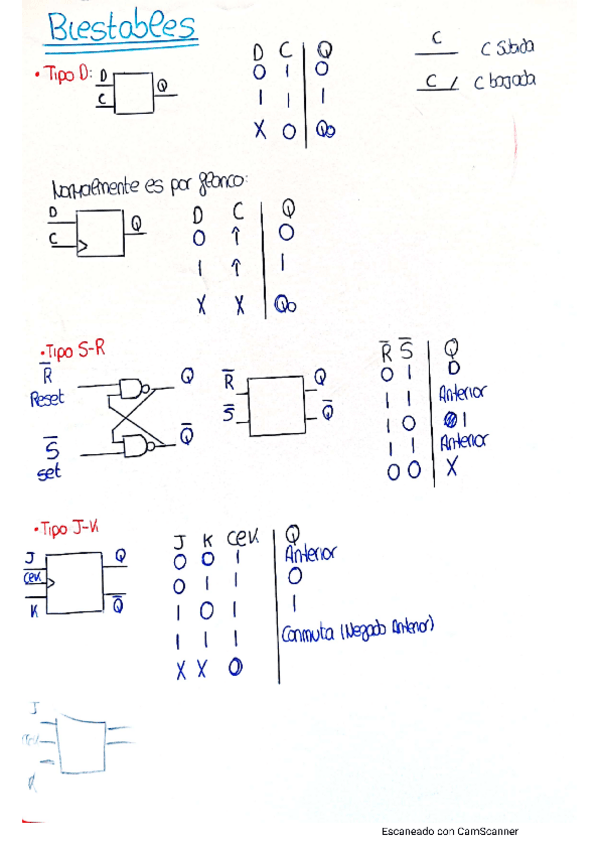 Biestables
• Tipo D:
D
C
Q
D C Q
0 1 0
1 1 1
X 0 Q0
C
C Subida
C
C bajada
Normalmente es por flanco:
D
C
Q
D C Q
0 ↑ 0
1 ↑ 1
X X Q0
• Tipo S-R
R̅
Reset
S̅
set
Q
Q̅
R̅
S̅
Q
Q̅
R̅ S̅ Q
0 1 0
1 1 Anterior
1 0 1
1 1 Anterior
0 0 X
• Tipo J-K
J
K
Q
Q̅
J K Q
0 0 1 Anterior
0 1 1 0
1 0 1 1
1 1 1 Conmuta (Negado Anterior)
X X 0
J
K
Escaneado con CamScanner